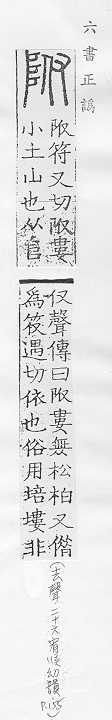 六書正譌
附
附符又切附婁
小土山也从𨸏
付聲傳曰附婁無松柏又借
為符遇切依也俗用培塿非
(去聲二十六宥候幼韻 P.155)